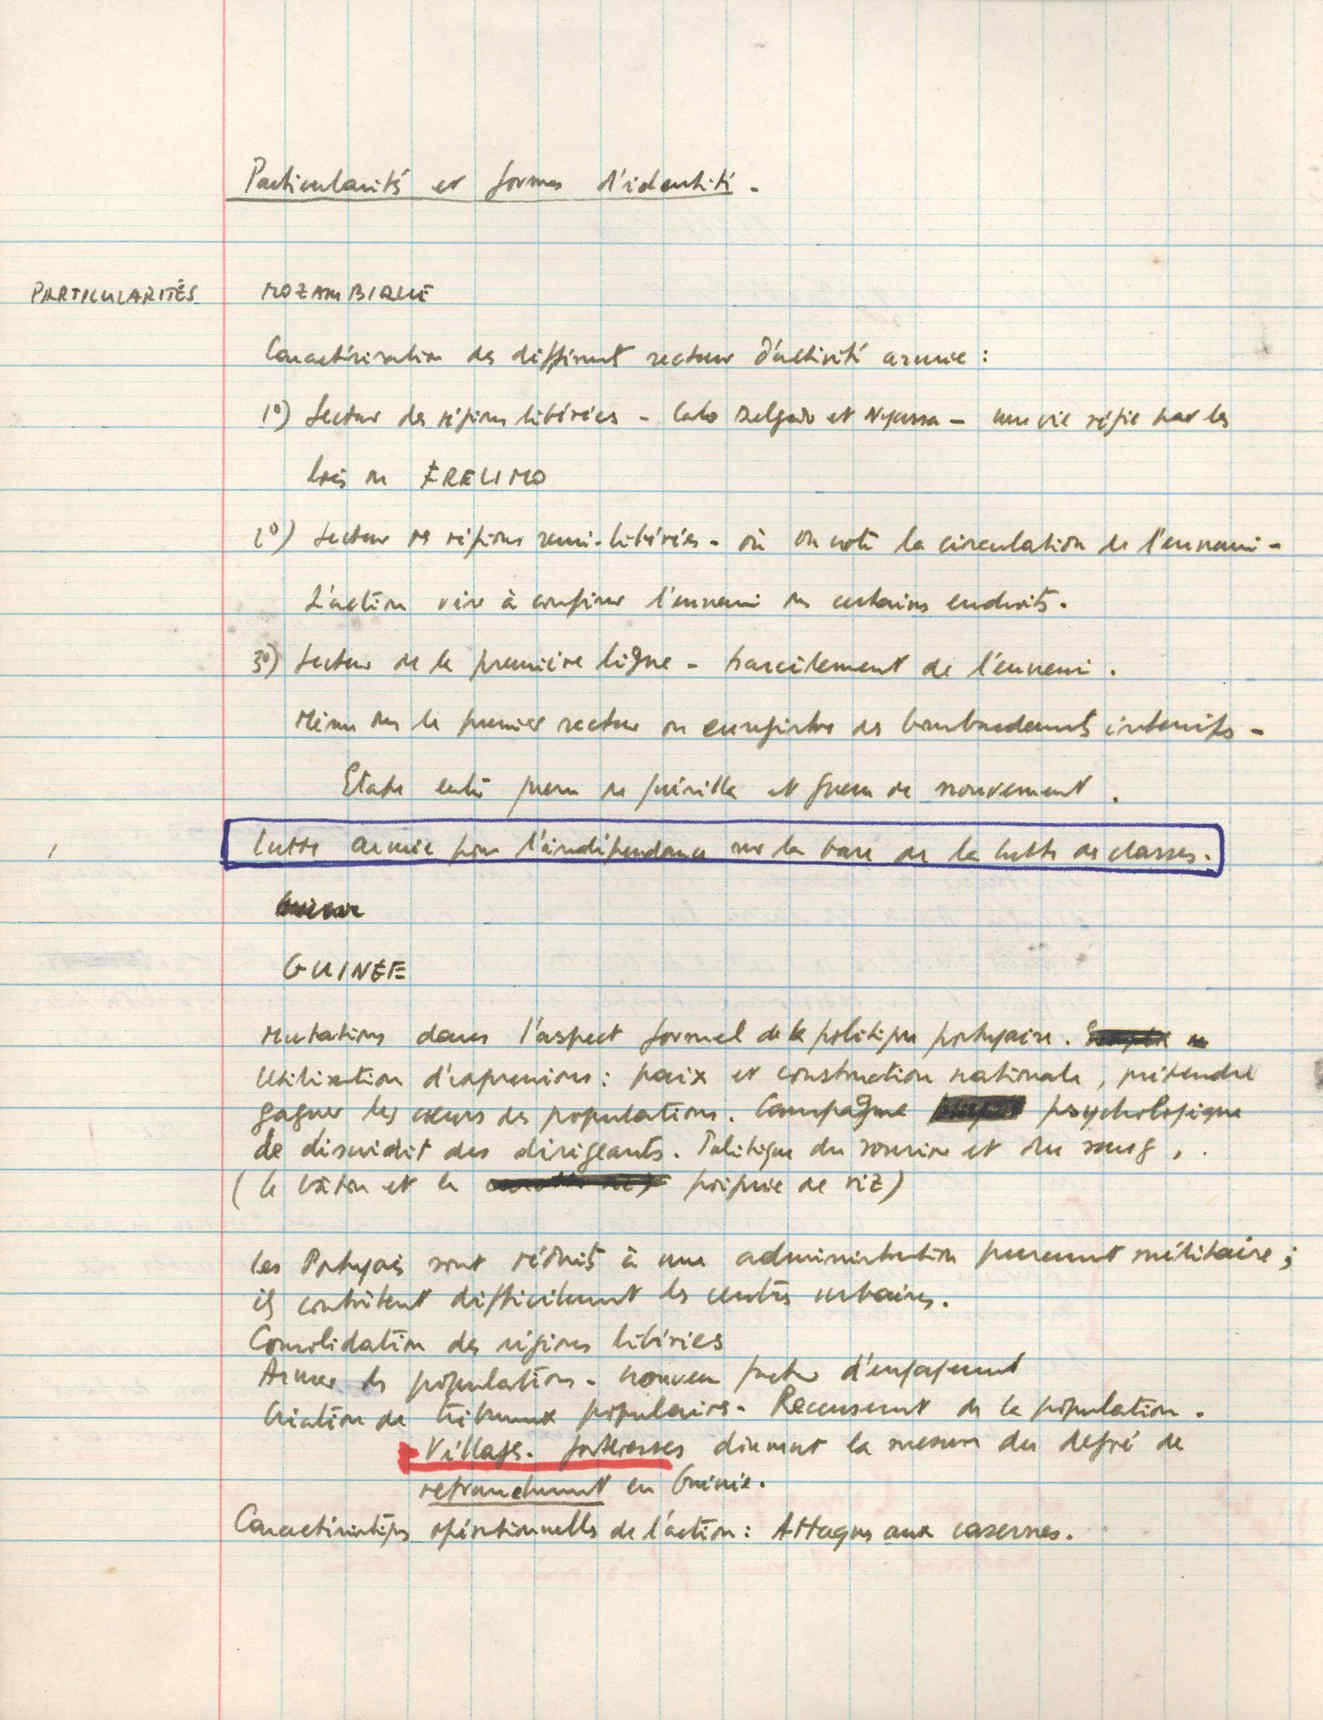 Particularités et formes d'identité.
PARTICULARITÉS MOZAMBIQUE
Caractérisation des différents secteurs d'activité armée :
1º) Secteur des régions libérées - Cabo Delgado et Nyassa - une vie régie par les
lois du FRELIMO
2º) Secteur des régions semi-libérées - où on note la circulation de l'ennemi -
L'action vise à confiner l'ennemi dans certains endroits.
3º) Secteur de la première ligne - harcèlement de l'ennemi.
Même dans le premier secteur on enregistre des bombardements intensifs -
Etape entre guerre de guérilla et guerre de mouvement.
Lutte armée pour l'indépendance sur la base de la lutte de classes.
GUINÉE
Mutations dans l'aspect formel de la politique portugaise.
Utilisation d'expressions : paix et construction nationale, prétendre
gagner les cœurs des populations. Campagne psychologique
de discrédit des dirigeants. Politique du sourire et du sang,
(le bâton et la poignée de riz)
Les Portugais sont réduits à une administration purement militaire ;
ils contrôlent difficilement les centres urbains.
Consolidation des régions libérées
Armer les populations - nouveau facteur d'engagement
Création de tribunaux populaires - Recensement de la population.
Villages-forteresses donnent la mesure du degré de
retranchement en Guinée.
Caractéristiques opérationnelles de l'action : Attaques aux casernes.